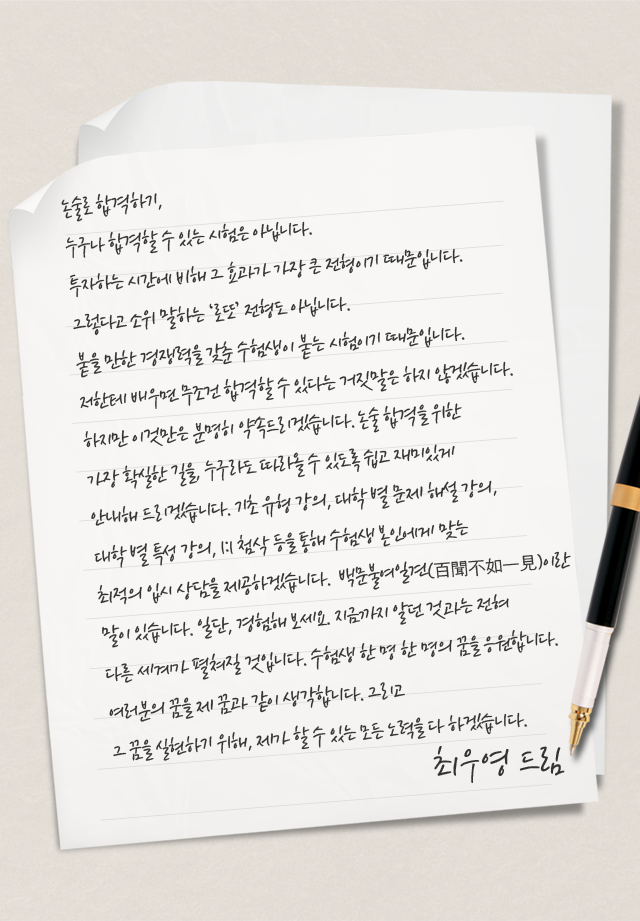 논술로 합격하기,
누구나 합격할 수 있는 시험은 아닙니다.
투자하는 시간에 비해 그 효과가 가장 큰 전형이기 때문입니다.
그렇다고 소위 말하는 '로또' 전형도 아닙니다.
붙을 만한 경쟁력을 갖춘 수험생이 붙는 시험이기 때문입니다.
저한테 배우면 무조건 합격할 수 있다는 거짓말은 하지 않겠습니다.
하지만 이것만은 분명히 약속드리겠습니다. 논술 합격을 위한
가장 확실한 길을, 누구라도 따라올 수 있도록 쉽고 재미있게
안내해 드리겠습니다. 기초 유형 강의, 대학 별 문제 해설 강의,
대학 별 특성 강의, 1:1 첨삭 등을 통해 수험생 본인에게 맞는
최적의 입시 상담을 제공하겠습니다. 백문불여일견(百聞不如一見)이란
말이 있습니다. 일단, 경험해 보세요. 지금까지 알던 것과는 전혀
다른 세계가 펼쳐질 것입니다. 수험생 한 명 한 명의 꿈을 응원합니다.
여러분의 꿈을 제 꿈과 같이 생각합니다. 그리고
그 꿈을 실현하기 위해, 제가 할 수 있는 모든 노력을 다 하겠습니다.
최우영 드림